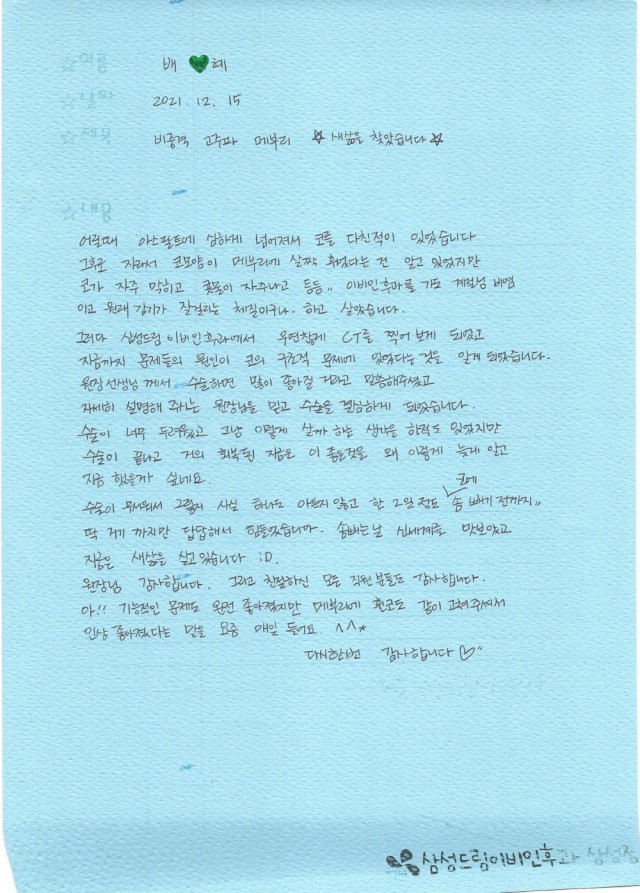 배 💚 혜
2021. 12. 15
비중격 고주파 메부리 ☆ 새삶을 찾았습니다 ☆
어릴때 아스팔트에 심하게 넘어져서 코를 다친적이 있었습니다
그후로 자라서 코모양이 메부리에 살짝 휘었다는 건 알고 있었지만
코가 자주 막히고 콧물이 자주나고 등등,, 이비인후과를 가도 계절성 비염
이고 원래 감기가 잘걸리는 체질이구나.. 하고 살았습니다.
그러다 삼성드림 이비인후과에서 우연찮게 CT를 찍어 보게 되었고
지금까지 문제들의 원인이 코의 구조적 문제에 있었다는 것을 알게 되었습니다.
원장선생님 께서 수술하면 많이 좋아질 거라고 말씀해주셨고
자세히 설명해 주시는 원장님을 믿고 수술을 결심하게 되었습니다.
수술이 너무 두려웠고 그냥 이렇게 살까 하는 생각을 한적도 있었지만
수술이 끝나고 거의 회복된 지금은 이 좋은것을 왜 이렇게 늦게 알고
지금 했을까 싶네요.
수술이 무서워서 그렇지 사실 하나도 아프지 않고 한 2일 정도 코에 솜 빼기 전까지,,
딱 거기 까지만 답답해서 힘들었습니다. 솜빼는날 신세계를 맛보았고
지금은 새삶을 살고 있습니다 :D.
원장님 감사합니다. 그리고 친절하신 모든 직원 분들도 감사합니다.
아!! 기능적인 문제도 완전 좋아졌지만 메부리에 휜코도 같이 고쳐주셔서
인상 좋아졌다는 말을 요즘 매일 들어요. ^^*
다시한번 감사합니다 ♡"
삼성드림이비인후과 삼성